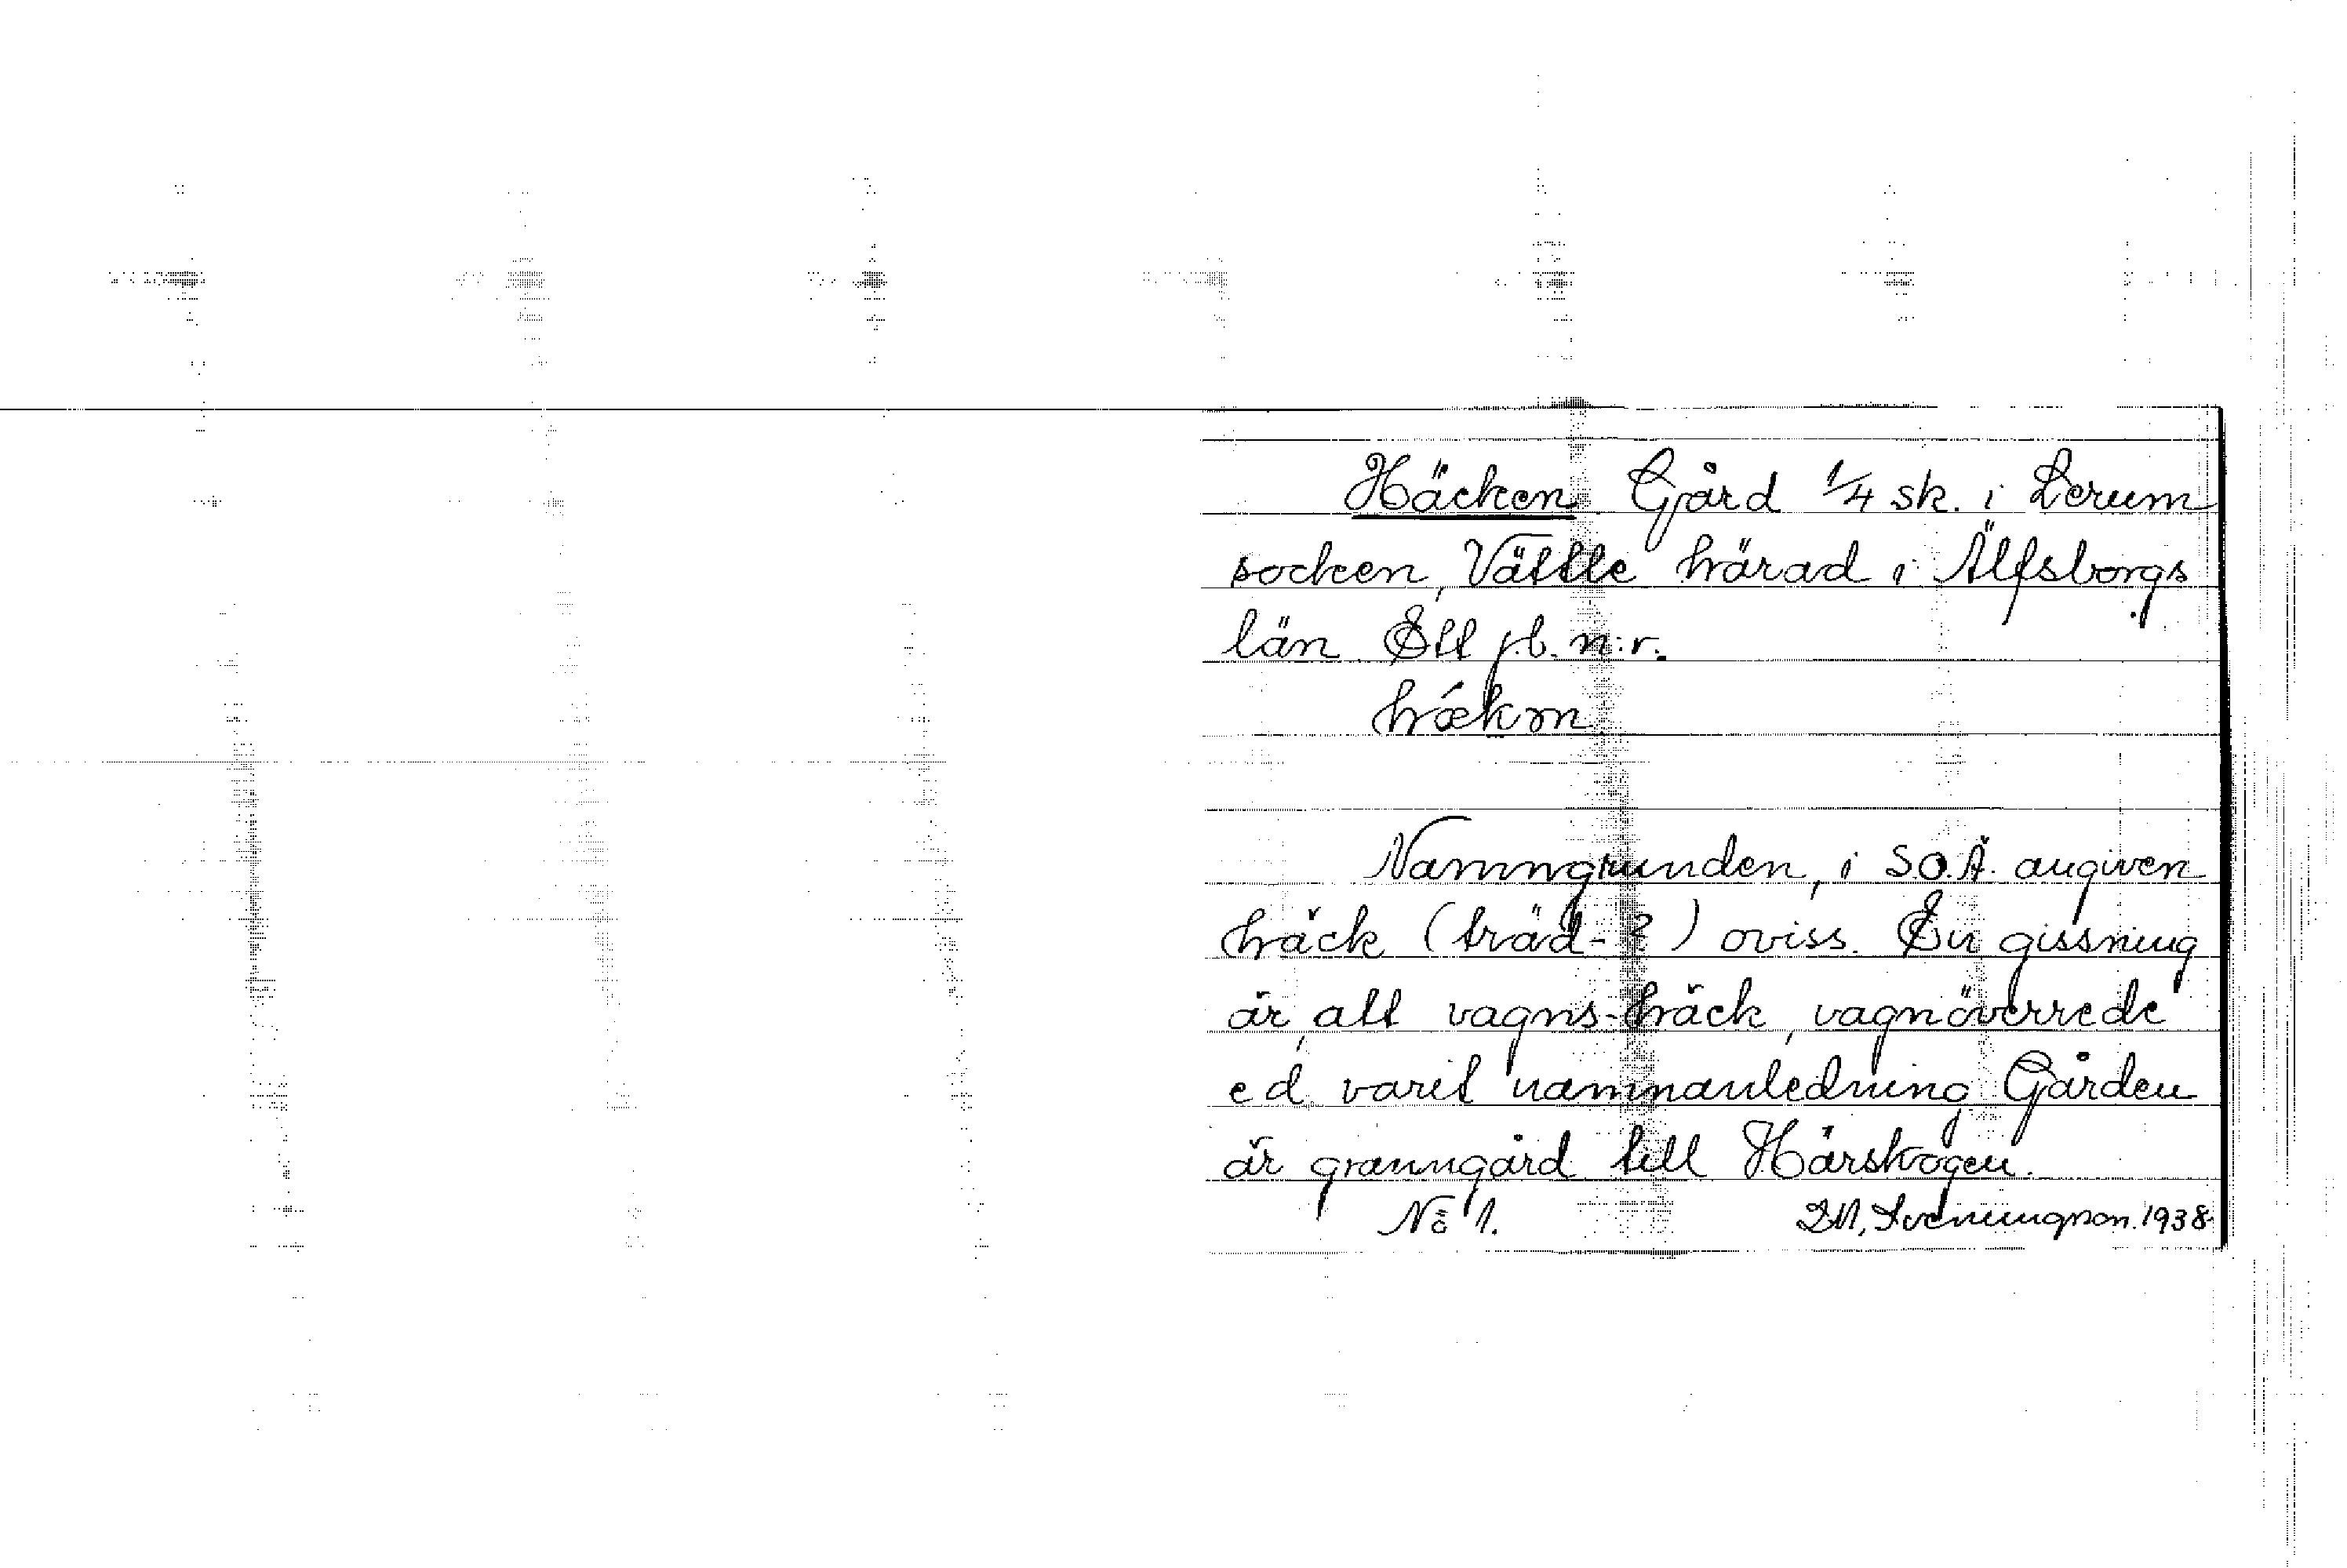 Häcken Gård 1/4 sk. i Lerum
socken, Vättle härad i Älfsborgs
län Ett j.b. n:r.
hǽkɷn
Namngrunden, i S.O.Ä. angiven
häck (träd-?) oviss. En gissning
är, att vagns-häck, vagnöverrede
e d. varit namnanledning Gården
är granngård till Härskogen.
No 1.
Sveningson. 1938